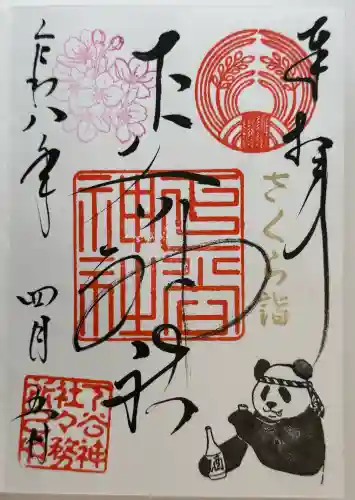 奉拝
さくら詣
下谷神社
下谷神
社々務
所之印
令和八年
四月
五日
酒